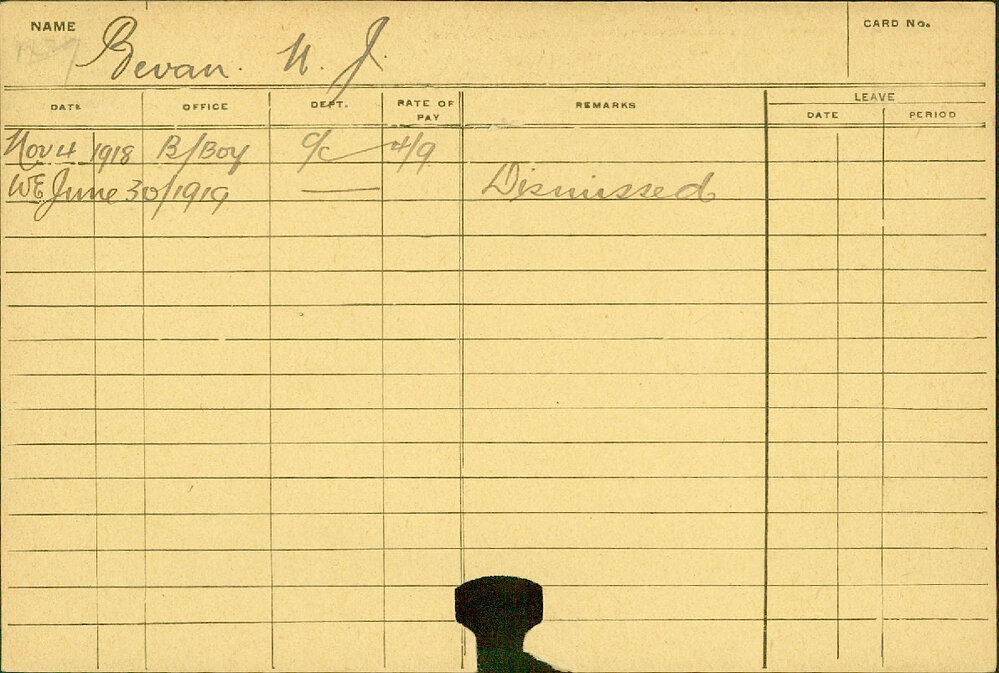 NAME Bevan. N. J. CARD No.
DATE OFFICE DEPT. RATE OF PAY REMARKS LEAVE
DATE PERIOD
Nov 4 1918 B/Boy 4/9
WE June 30/1919 — Dismissed